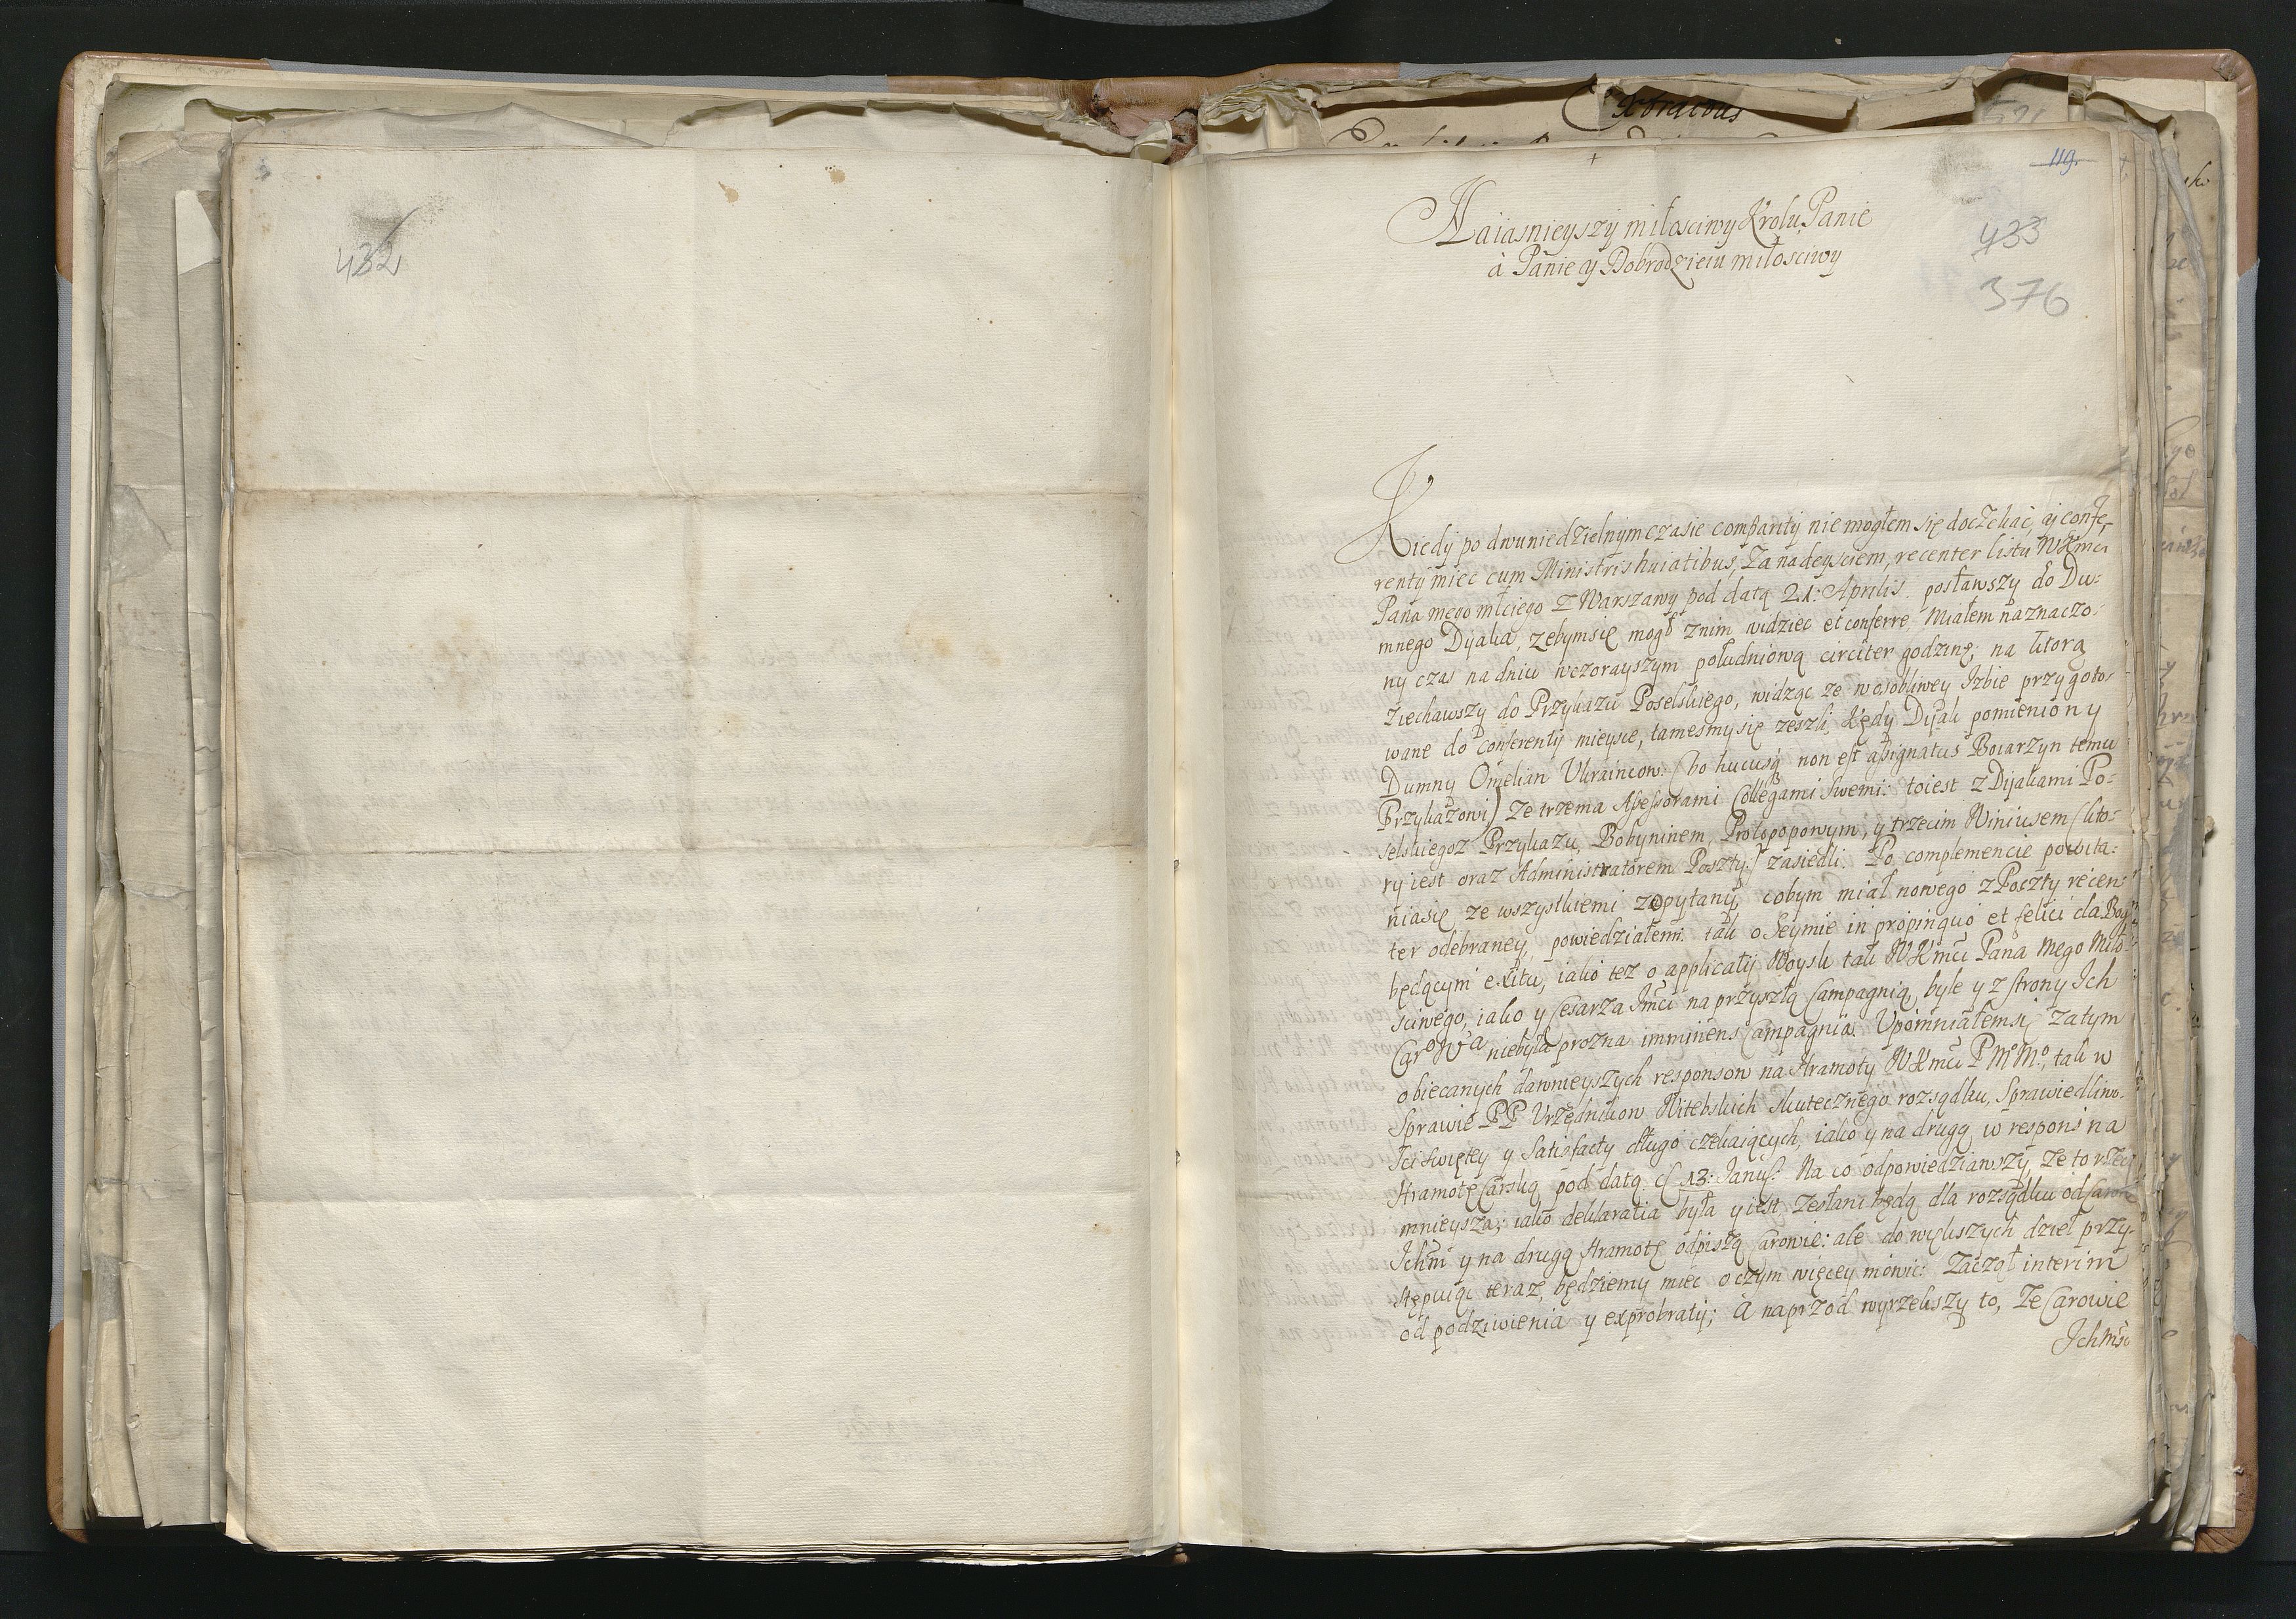 432
Extractus
119.
433
376
Naiasnieyszy miłosciwy Krolu Panie
a Panie y Dobrodzieiu miłosciwy
Kiedy po dwuniedzielnym czasie comparity nie mogłem się doczekać, y confe-
renty miec cum Ministris huiatibus, Za nadeysciem, recenter listu WKmci
Pana mego młciego Z Warszawy pod datą 21: Aprilis. posławszy do Du-
mnego Dyaka, zebym się mogł znim widziec et conferre, Miałem naznaczo-
ny czas na dniu wczorayszym południową circiter godzinę; na ktorą
Ziechawszy do Przykazu Poselskiego, widząc ze w osobliwey Izbie przygoto-
wane do conferenty mieysce, tamesmy się zeszli, kędy Dijak pomieniony
Dumny Omelian Ukraincow: (bo hucusq non est assignatus Boiarzyn temu
Przykazowi) ze trzema Assessorami Collegami swemi: toiest z Dijakami Po-
selskiegoz Przykazu, Bobyninem, Protopopowym, y trzecim Winiusem (kto-
ry iest oraz Administratorem Poszty:) zasiedli. Po complemencie powita-
nia się ze wszystkiemi zapytany, cobym miał nowego z Poczty recen-
ter odebraney, powiedziałem: tak o Seymie in propinquo et felici da Bog
będącym exitu, iako tez o applicatij Woysk tak WKmci Pana Mego Miło-
sciwego, iako y Cesarza Jmci na przyszłą Campagnią, byle y z strony Ich
Car⁰ Wa niebyła prozna imminens Campagnia. Upomniałem się zatym
obiecanych dawnieyszych responsow na Hramoty WKmci P M⁰ M⁰, tak w
Sprawie PP Urzędnikow Witebskich skutecznego rozsądku, Sprawiedliwo-
sci swiętey y Satisfacty długo czekaiących, iako y na drugą w respons na
Hramotę Carską pod datą d 13: Januſ: Na co odpowiedziawszy, Ze to rzecz
mnieysza; iako deklaratia była y iest, Zesłani będą dla rozsądku od Carow
Ichm y na drugą Hramotę odpiszą Carowie: ale do większych dzieł przy-
stępuiąc teraz, będziemy miec o czym więcey mowic: Zaczął interim
od podziwienia y exprobraty; A naprzod wyrzekszy to, Ze Carowie
Ichmść